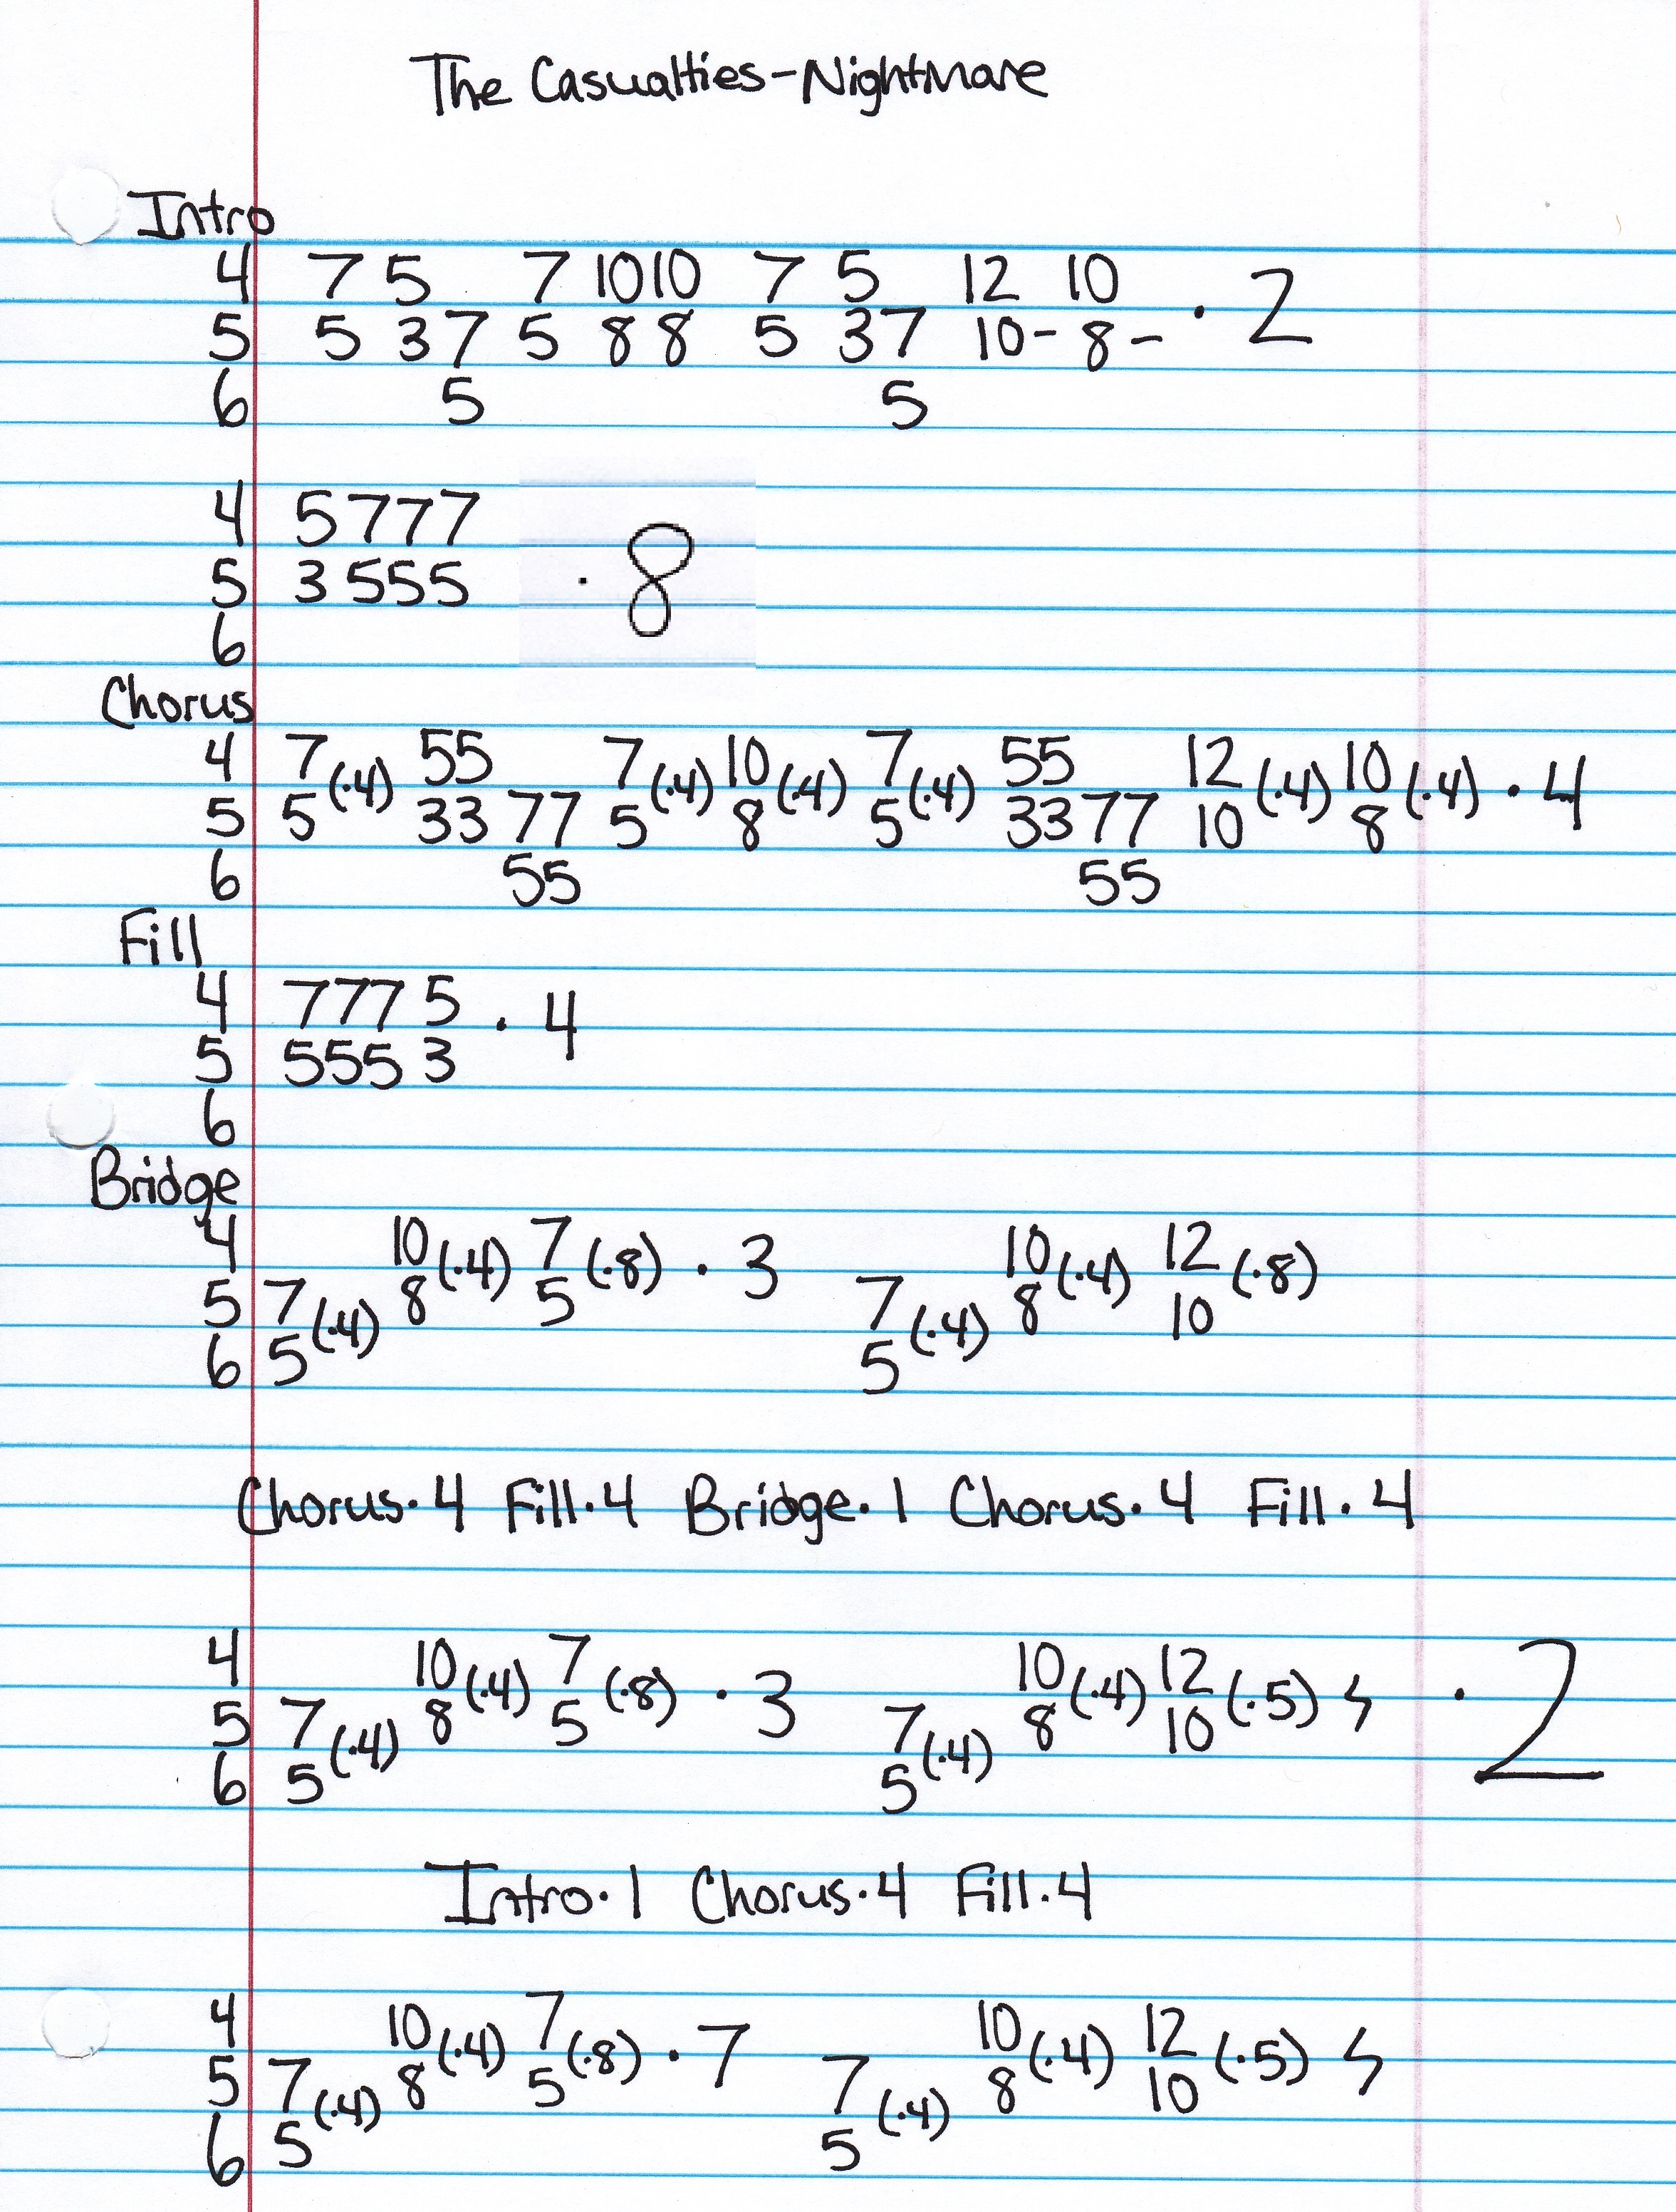 The Casualties-Nightmare
Intro
4 7 5 7 10 10 7 5 12 10
5 5 3 7 5 8 8 5 3 7 10- 8- · 2
6 5 5
4 5 7 7 7
5 3 5 5 5 · 8
6
Chorus
4 7 55 7 10 7 55 12 10
(·4) (·4) (·4) (·4) (·4) (·4) · 4
5 5 33 77 5 8 5 33 77 10 8
6 55 55
Fill
4 777 5
· 4
5 555 3
6
Bridge
4 10 (·4) 7 (·8) · 3 10 (·4) 12 (·8)
5 7 (·4) 8 5 7 (·4) 8 10
6 5 5
Chorus·4 Fill·4 Bridge·1 Chorus·4 Fill·4
4 10 (·4) 7 (·8) · 3 10 (·4) 12 (·5) ϟ · 2
5 7 (·4) 8 5 7 (·4) 8 10
6 5 5
Intro·1 Chorus·4 Fill·4
4 10 (·4) 7 (·8) · 7 10 (·4) 12 (·5) ϟ
5 7 (·4) 8 5 7 (·4) 8 10
6 5 5